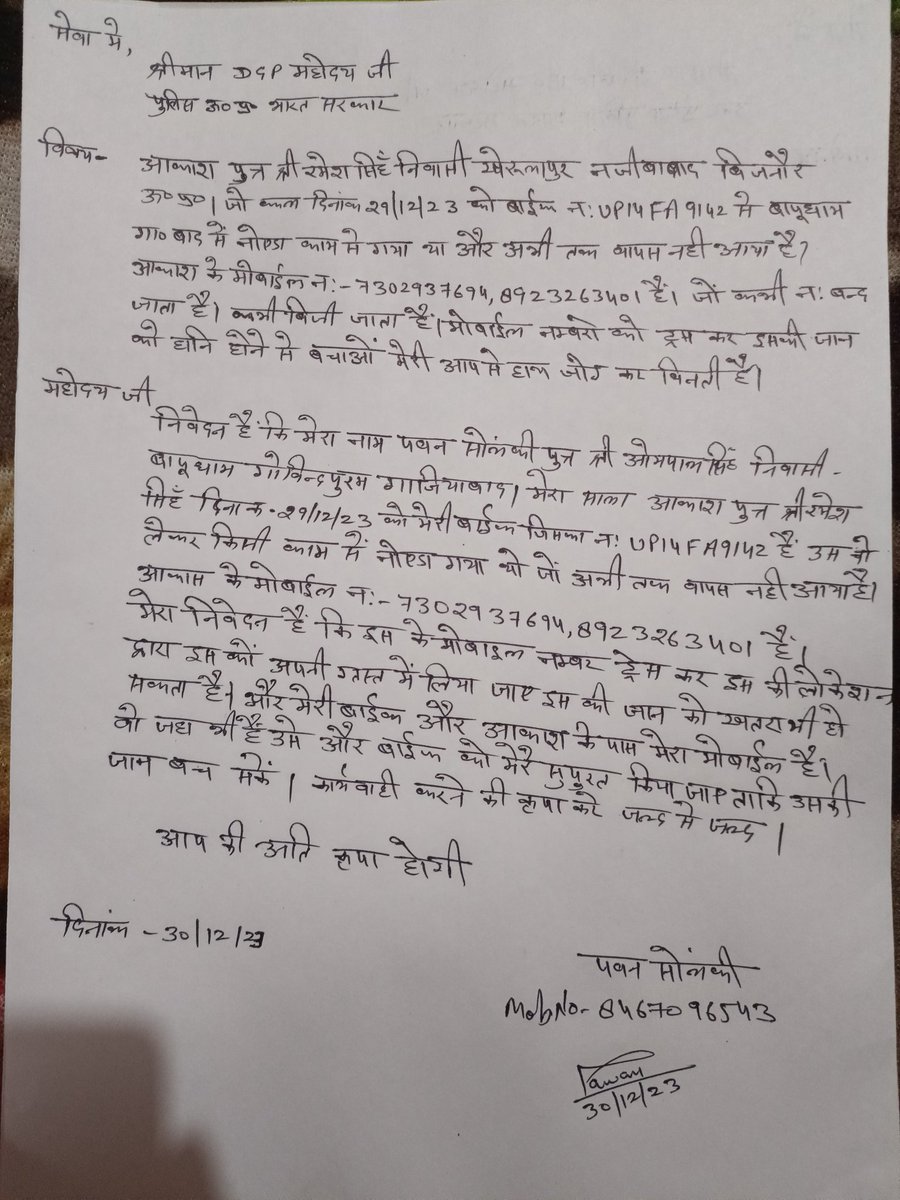 सेवा मे,
श्रीमान DGP महोदय जी
पुलिस उ० प्र० भारत सरकार
विषय- आकाश पुत्र श्री रमेश सिहँ निवासी नजीबाबाद बिजनौर
उ० प्र०। जो कल दिनांक 29/12/23 को बाईक न: UP14FA9142 से बापूधाम
गा० बाद से नोएडा काम से गया था और अभी तक वापस नही आया है?
आकाश के मोबाईल न:- 7302937694, 8923263401 है। जो कभी न: बन्द
जाता है। कभी बिजी जाता है। मोबाईल नम्बरो को ट्रेस कर इसकी जान
को हानि होने से बचाओं मेरी आप से हाथ जोड कर विनती है।
महोदय जी
निवेदन है कि मेरा नाम पवन सोलंकी पुत्र श्री ओमपाल सिंह निवासी-
बापूधाम गोविन्दपुरम गाजियाबाद। मेरा साला आकाश पुत्र श्री रमेश
सिहँ दिनाक- 29/12/23 को मेरी बाईक जिसका न: UP14FA9142 है उस को
लेकर किसी काम से नोएडा गया था जो अभी तक वापस नही आया है।
आकास के मोबाईल न:- 7302937694, 8923263401 है।
मेरा निवेदन है कि इस के मोबाईल नम्बर ट्रेस कर इस की लोकेशन
द्वारा इस को अपनी में लिया जाए इस की जान को खतरा भी हो
सकता है। और मेरी बाईक और आकाश के पास मेरा मोबाईल है।
वो जहा भी है उस और बाईक को मेरे सुपुरत किया जाए ताकि उसकी
जान बच सकें। कार्यवाही करने की कृपा करे जल्द से जल्द।
आप की अति कृपा होगी
दिनांक - 30/12/23
पवन सोलंकी
Mob No- 8467096543
Pawan
30/12/23